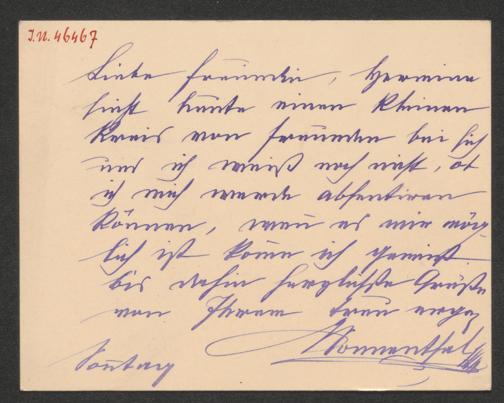 I.N. 46467
Liebe Freundin, Hermine
sieht heute einen kleinen
Kreis von Freunden bei sich
und ich weiß noch nicht, ob
ich mich werde absentiren
können, wenn es mir mög
lich ist komme ich gewiß.
bis dahin herzlichste Grüße
von Ihrem treu ergeb
Sonnenthal
Sonntag